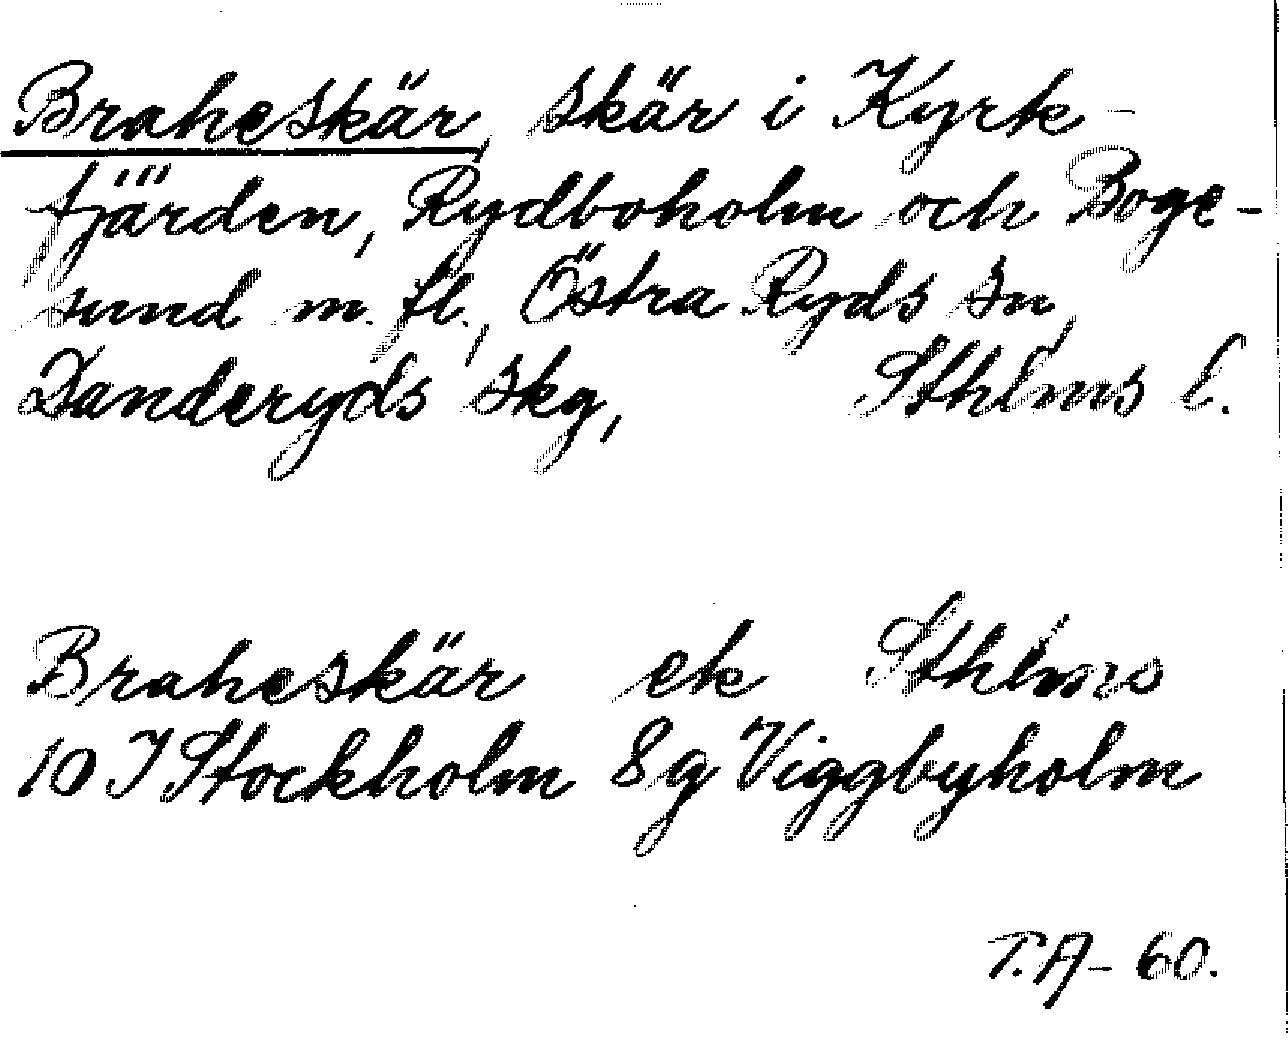 Braheskär, skär i Kyrk-
fjärden, Rydboholm och Boge-
sund m. fl., Östra Ryds sn,
Danderyds skg, Sthlms l.
Braheskär ek Sthlms
10 I Stockholm 8g Viggbyholm
T.A- 60.